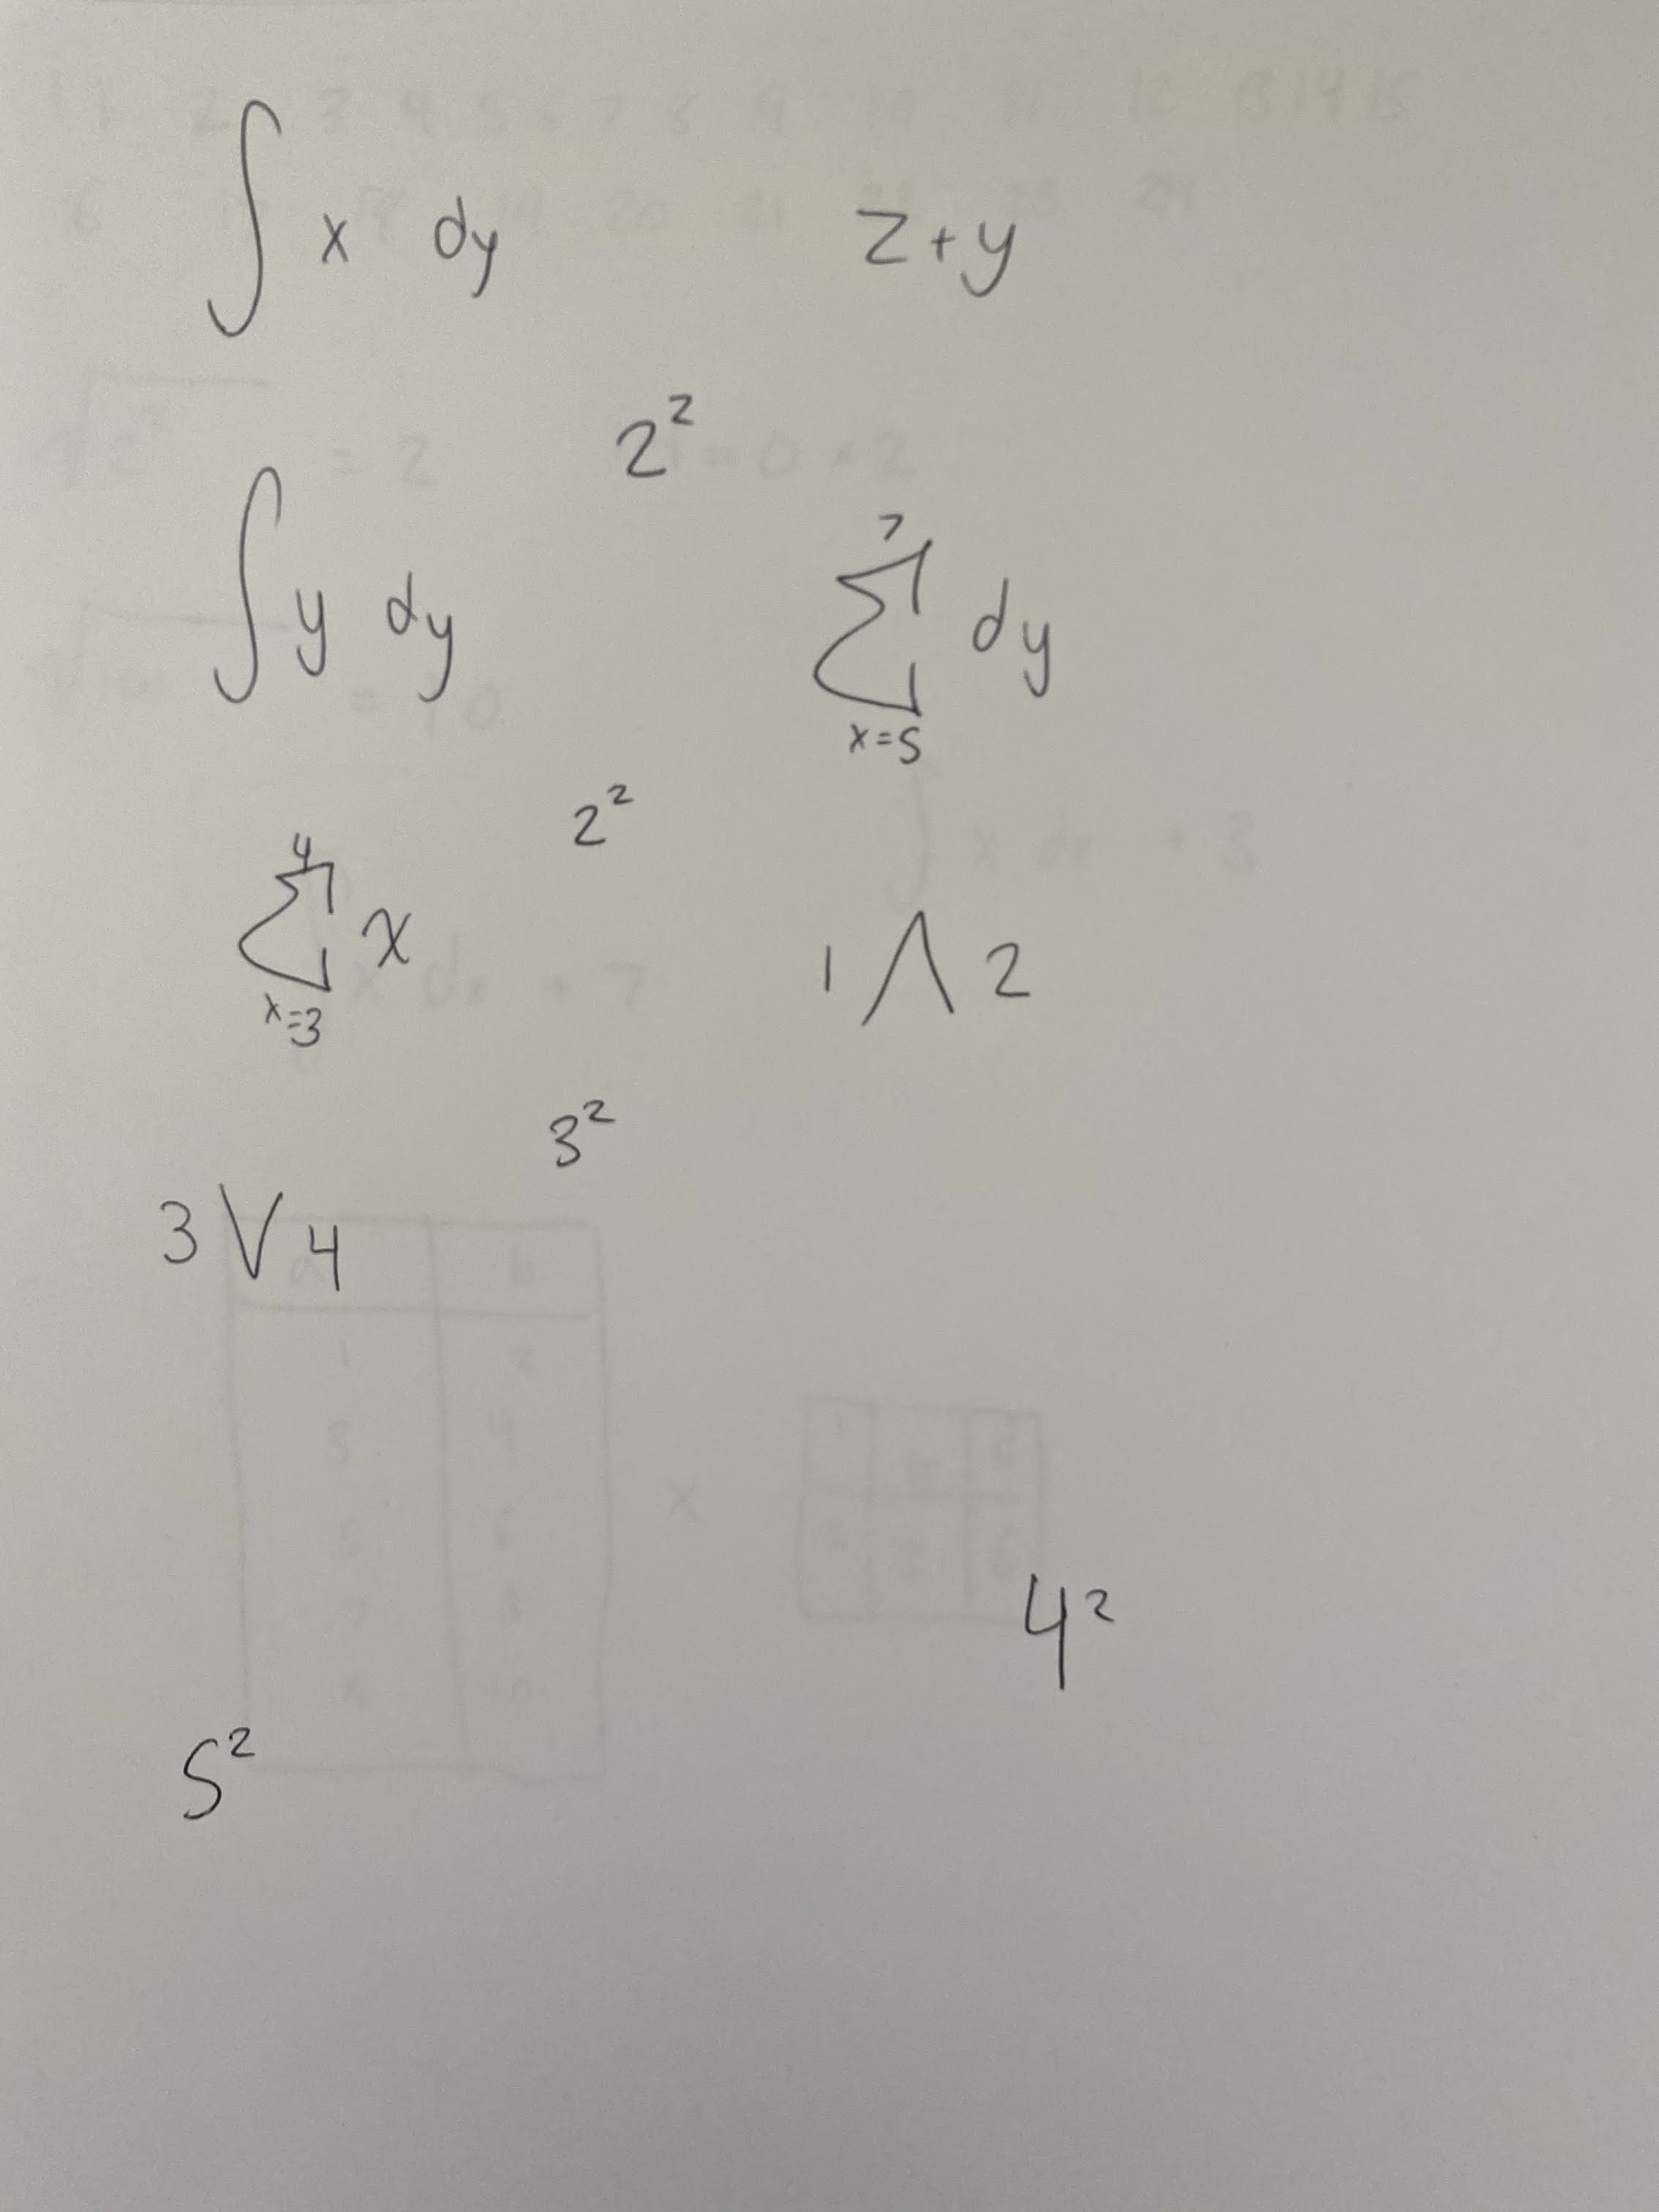 ∫ x dy z+y
2²
∫ y dy ∑_{x=5}^{7} dy
2²
∑_{x=3}^{4} x 1 ∧ 2
3²
3 ∨ 4
4²
5²